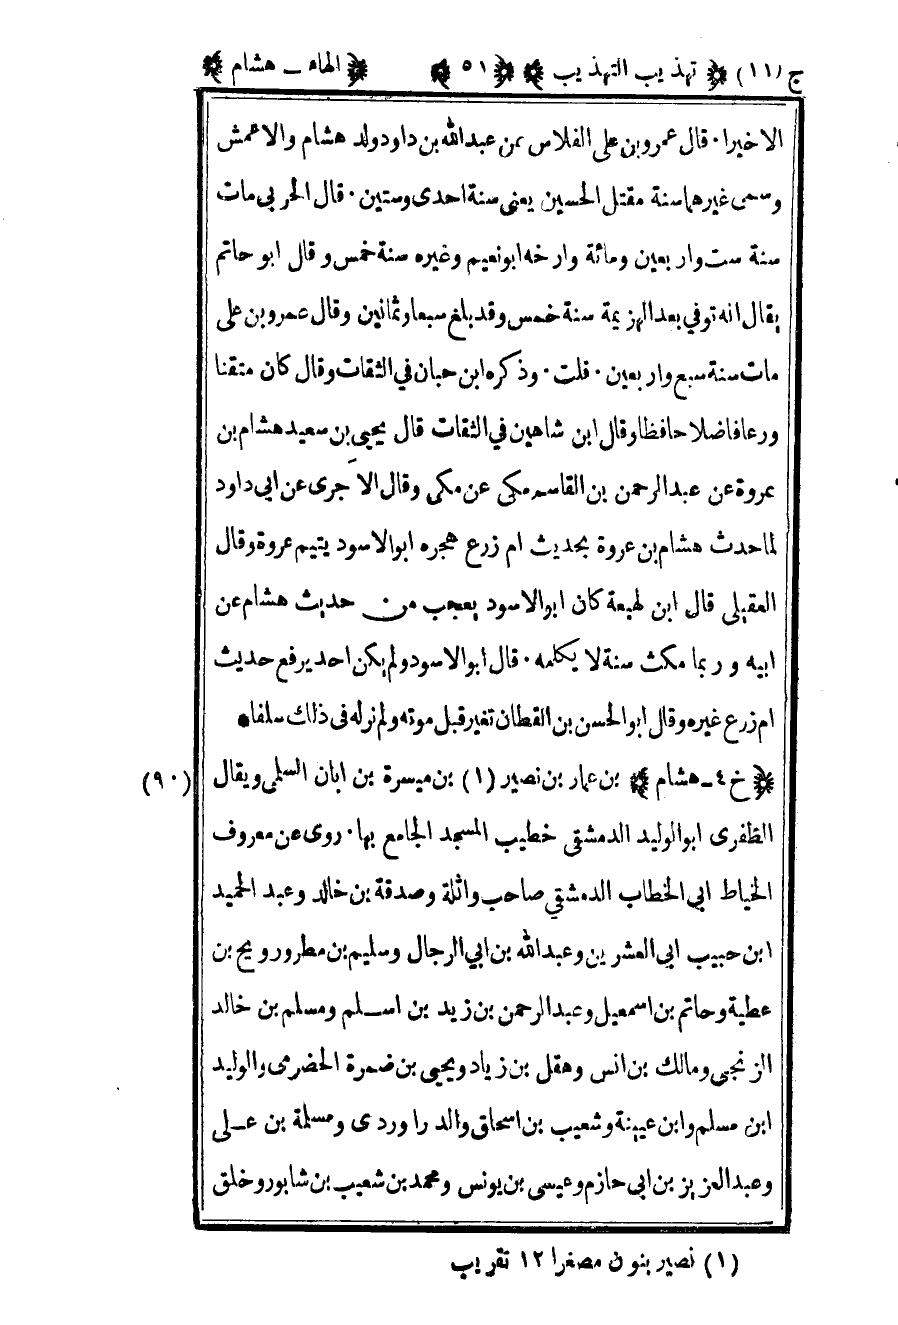 ج (١١) ﴿ تهذيب التهذيب ﴾ ﴿ ٥١ ﴾ ﴿ الهاء ـ هشام ﴾
الاخيرا٠ قال عمرو بن علي الفلاس عن عبدالله بن داود ولد هشام والاعمش
وسمى غيرهما سنة مقتل الحسين يعنى سنة احدى وستين٠ قال الحربي مات
سنة ست واربعين ومائة وارخه ابونعيم وغيره سنة خمس وقال ابو حاتم
يقال انه توفي بعد الهزيمة سنة خمس وقد بلغ سبعا وثمانين وقال عمرو بن علي
مات سنة سبع واربعين٠ قلت٠ وذكره ابن حبان في الثقات وقال كان متقنا
ورعا فاضلا حافظا وقال ابن شاهين في الثقات قال يحيى بن سعيد هشام بن
عروة عن عبدالرحمن بن القاسم مكى عن مكى وقال الاجرى عن ابى داود
لما حدث هشام بن عروة بحديث ام زرع هجره ابوالاسود يتيم عروة وقال
العقيلي قال ابن لهيعة كان ابوالاسود يعجب من حديث هشام عن
ابيه وربما مكث سنة لا يكلمه٠ قال ابوالاسود ولم يكن احد يرفع حديث
ام زرع غيره وقال ابوالحسن بن القطان تغير قبل موته ولم نر له فى ذلك سلفا●
﴿ خ ٤ ـ هشام ﴾ بن عمار بن نصير (١) بن ميسرة بن ابان السلمى ويقال (٩٠)
الظفرى ابوالوليد الدمشقى خطيب المسجد الجامع بها٠ روى عن معروف
الخياط ابي الخطاب الدمشقي صاحب واثلة وصدقة بن خالد وعبد الحميد
ابن حبيب ابي العشرين وعبدالله بن ابي الرجال وسليم بن مطرور ويح بن
عطية وحاتم بن اسمعيل وعبدالرحمن بن زيد بن اسـلم ومسلم بن خالد
الزنجي ومالك بن انس وهقل بن زياد ويحيى بن ضمرة الحضرمى والوليد
ابن مسلم وابن عيينة وشعيب بن اسحاق والدراوردى ومسلمة بن عـلى
وعبدالعزيز بن ابى حازم وعيسى بن يونس ومحمد بن شعيب بن شابور وخلق
(١) نصير بنون مصغرا ١٢ تقريب